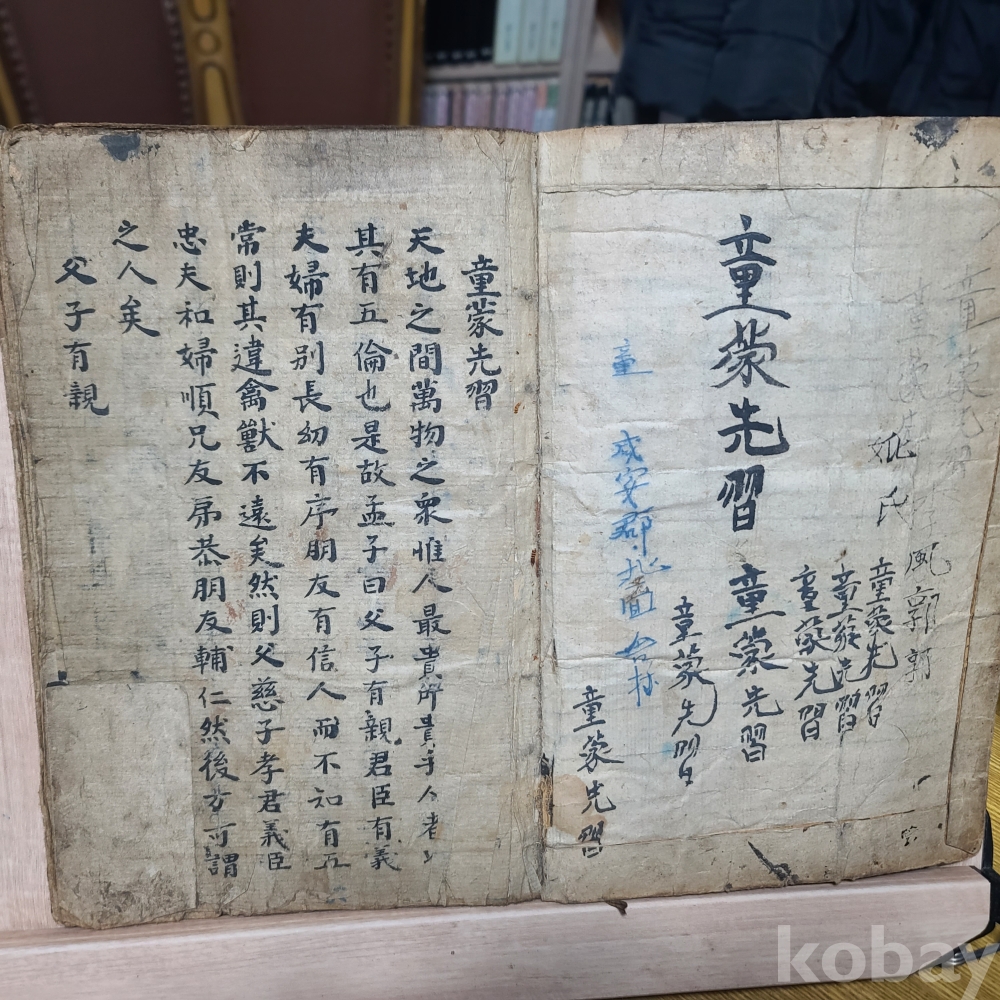 童蒙先習
風郭郭
氏
童蒙先習
童蒙先習
童蒙先習
童蒙先習
童蒙先習
童蒙先習
童
咸安郡
面
童蒙先習
童蒙先習
天地之間萬物之衆惟人最貴所貴乎人者以
其有五倫也是故孟子曰父子有親君臣有義
夫婦有别長幼有序朋友有信人而不知有五
常則其違禽獸不遠矣然則父慈子孝君義臣
忠夫和婦順兄友弟恭朋友輔仁然後方可謂
之人矣
父子有親
kobay